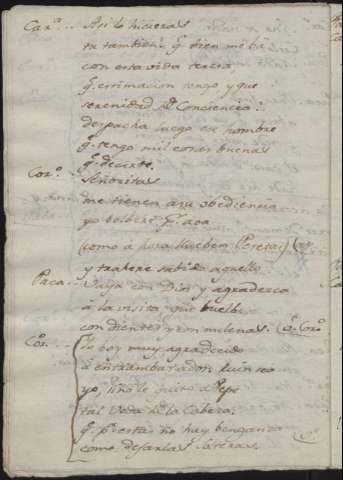 Car.ª .. Asi lo hicieras
tu tambien! q. bien me ba
con esta vida Teresa,
q. estimacion tengo y que
serenidad de Conciencia!
despacha luego ese hombre
q. tengo mil cosas buenas
q. decirte.
Cor.º .. Señoritas
me tienen a su obediencia
yo bolbere p.r aca
(como a hora llueben Peretas)
y trahere sabido aquello
Paca .. Vaya con Dios y agradezca
à la visita que buelbe
con dientes y con muelas.
Cor.º .. Yo boy muy agradecido
à entrambas
yo, sino le quito
tal de la Cabeza,
q. p.a estas no hay benganza
como dejarlas solteras.